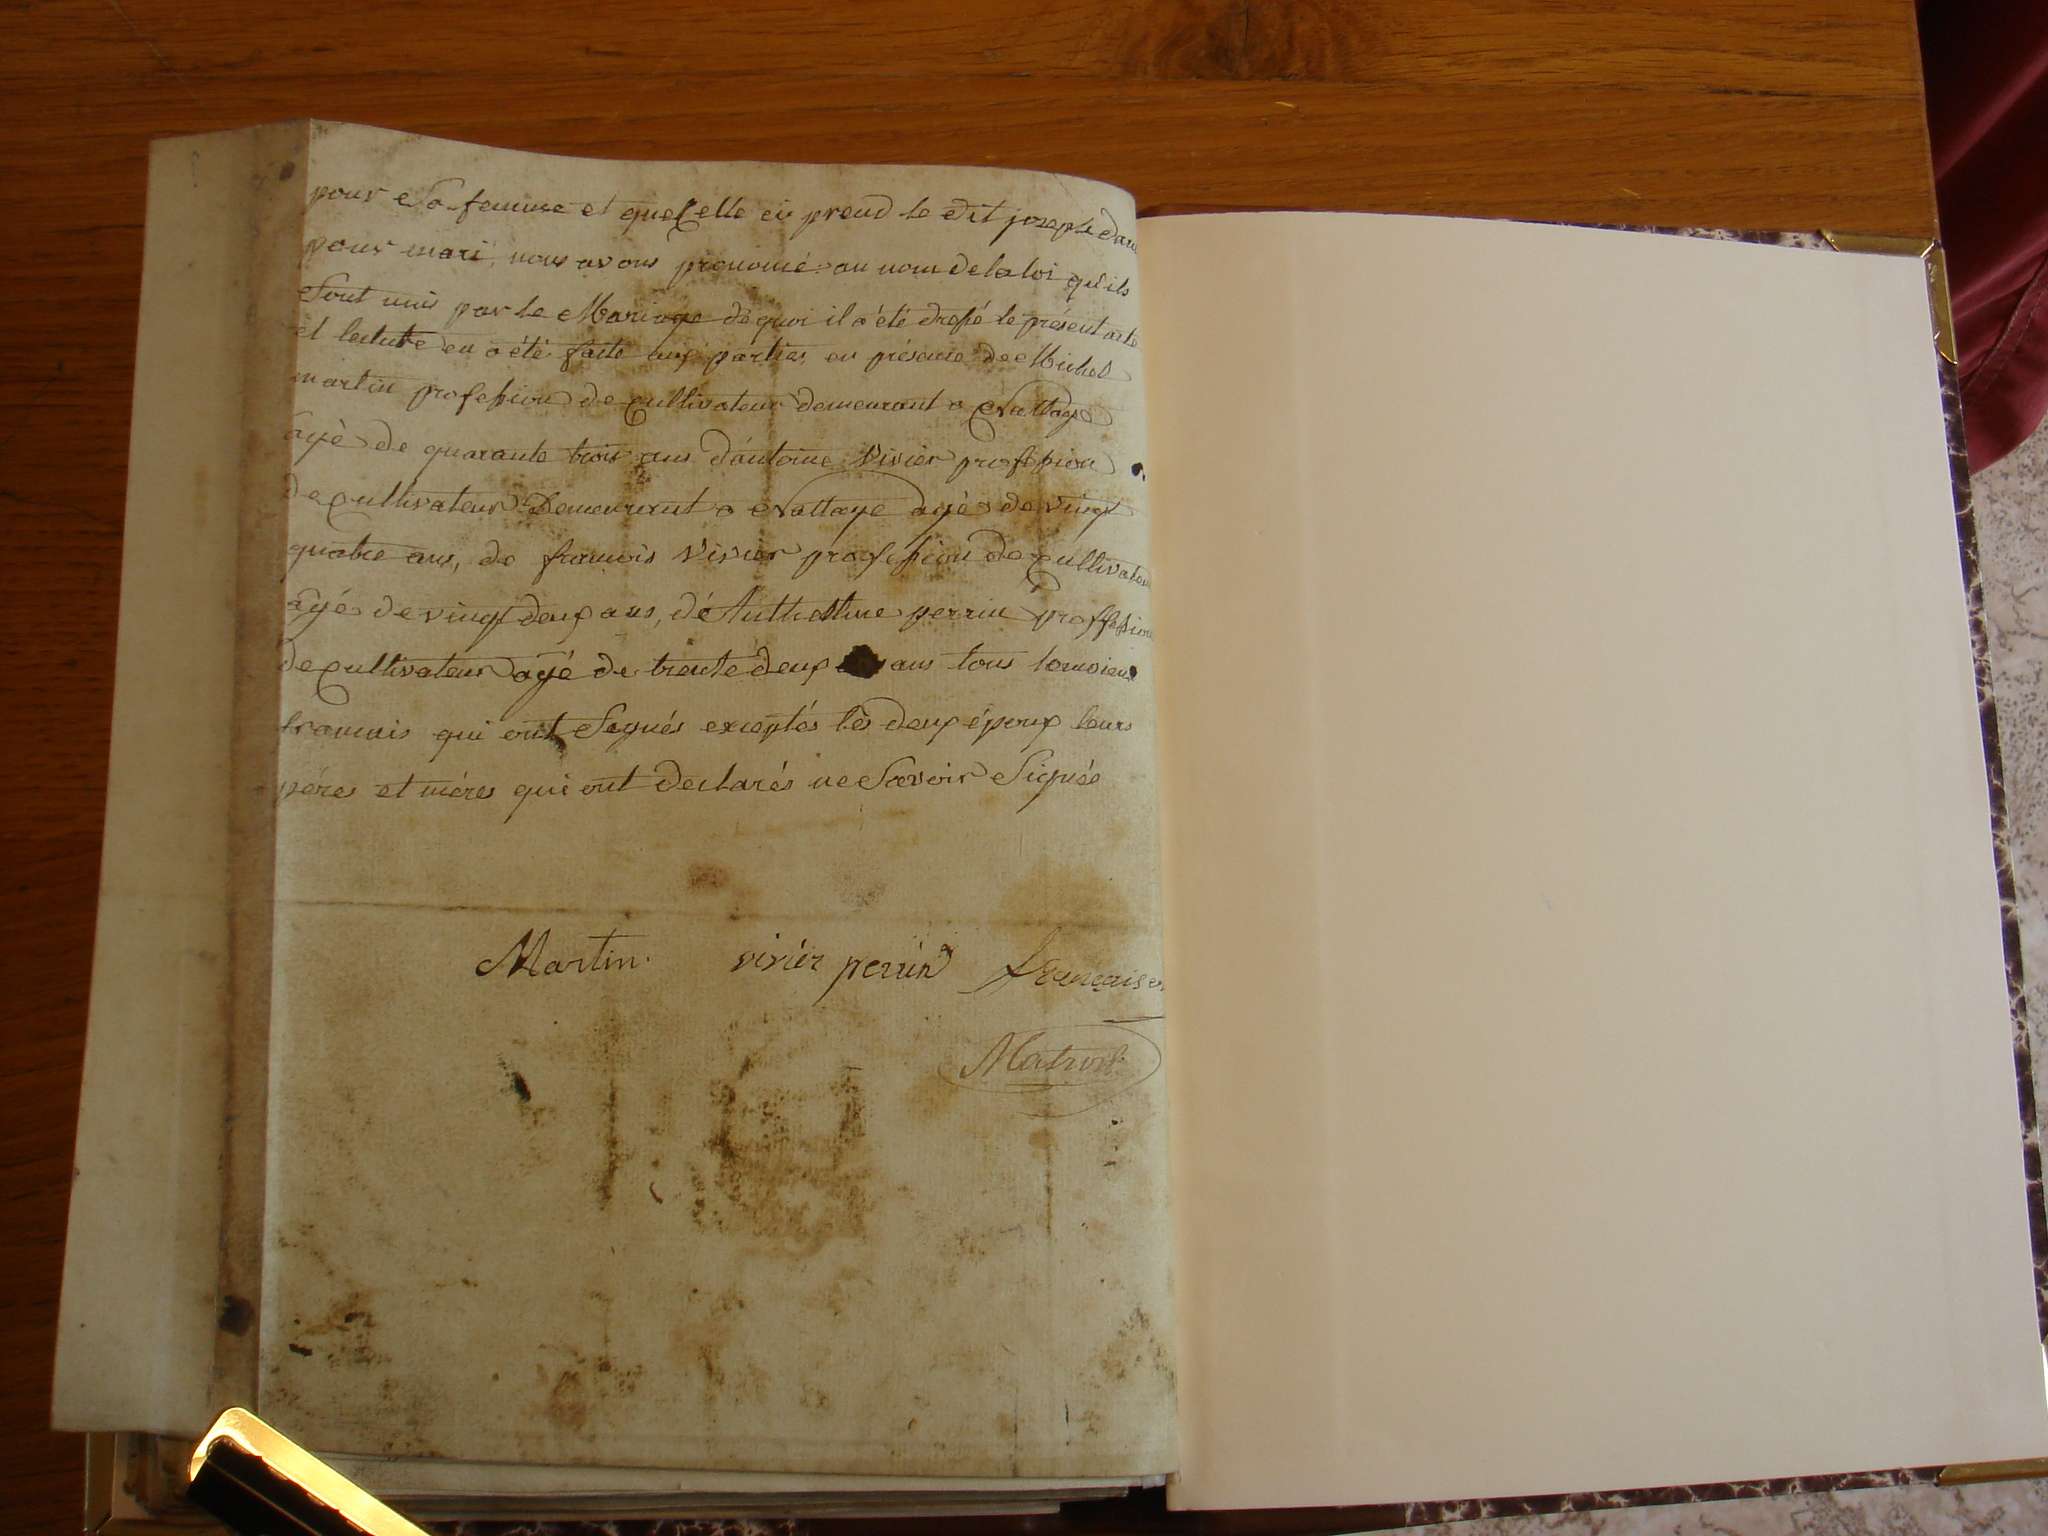 pour Sa femme et quelle en prend le dit joseph
pour mari, nous avons prononcé au nom de la loi qu'ils
Sont unis par le Mariage de quoi il a été dressé le présent acte
et lecture en a été faite aux parties en présence de Michel
martin profession de Cultivateur demeurant a
agé de quarante trois ans d'antoine Vivier profession
de Cultivateur Demeurant a agé de vingt
quatre ans, de francois Vivier profession de Cultivateur
agé de vingt deux ans, d' perrin proffession
de Cultivateur agé de trente deux ans tous temoiens
francais qui ont Signés exceptés lés deux époux leurs
péres et méres qui ont declarés ne Savoir Signée
Martin. viviér perrin français